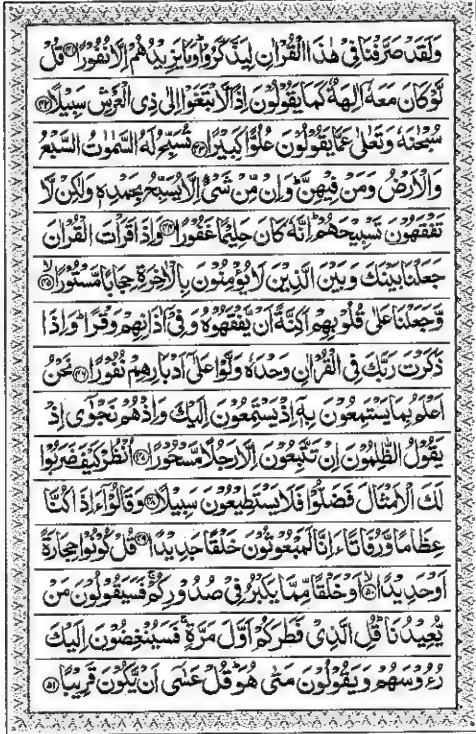 وَلَقَدْ صَرَّفْنَا فِیْ هٰذَا الْقُرْاٰنِ لِیَذَّكَّرُوْا ؕ وَمَا یَزِیْدُهُمْ اِلَّا نُفُوْرًا ﴿۴۱﴾ قُلْ
لَّوْ كَانَ مَعَهٗۤ اٰلِهَةٌ كَمَا یَقُوْلُوْنَ اِذًا لَّابْتَغَوْا اِلٰى ذِی الْعَرْشِ سَبِیْلًا ﴿۴۲﴾
سُبْحٰنَهٗ وَتَعٰلٰى عَمَّا یَقُوْلُوْنَ عُلُوًّا كَبِیْرًا ﴿۴۳﴾ تُسَبِّحُ لَهُ السَّمٰوٰتُ السَّبْعُ
وَالْاَرْضُ وَمَنْ فِیْهِنَّ ؕ وَاِنْ مِّنْ شَیْءٍ اِلَّا یُسَبِّحُ بِحَمْدِهٖ وَلٰكِنْ لَّا
تَفْقَهُوْنَ تَسْبِیْحَهُمْ ؕ اِنَّهٗ كَانَ حَلِیْمًا غَفُوْرًا ﴿۴۴﴾ وَاِذَا قَرَاْتَ الْقُرْاٰنَ
جَعَلْنَا بَیْنَكَ وَبَیْنَ الَّذِیْنَ لَا یُؤْمِنُوْنَ بِالْاٰخِرَةِ حِجَابًا مَّسْتُوْرًا ﴿۴۵﴾ ۙ
وَّجَعَلْنَا عَلٰى قُلُوْبِهِمْ اَكِنَّةً اَنْ یَّفْقَهُوْهُ وَفِیْۤ اٰذَانِهِمْ وَقْرًا ؕ وَاِذَا
ذَكَرْتَ رَبَّكَ فِی الْقُرْاٰنِ وَحْدَهٗ وَلَّوْا عَلٰۤى اَدْبَارِهِمْ نُفُوْرًا ﴿۴۶﴾ نَحْنُ
اَعْلَمُ بِمَا یَسْتَمِعُوْنَ بِهٖۤ اِذْ یَسْتَمِعُوْنَ اِلَیْكَ وَاِذْ هُمْ نَجْوٰۤى اِذْ
یَقُوْلُ الظّٰلِمُوْنَ اِنْ تَتَّبِعُوْنَ اِلَّا رَجُلًا مَّسْحُوْرًا ﴿۴۷﴾ اُنْظُرْ كَیْفَ ضَرَبُوْا
لَكَ الْاَمْثَالَ فَضَلُّوْا فَلَا یَسْتَطِیْعُوْنَ سَبِیْلًا ﴿۴۸﴾ وَقَالُوْۤا ءَاِذَا كُنَّا
عِظَامًا وَّرُفَاتًا ءَاِنَّا لَمَبْعُوْثُوْنَ خَلْقًا جَدِیْدًا ﴿۴۹﴾ قُلْ كُوْنُوْا حِجَارَةً
اَوْ حَدِیْدًا ﴿۵۰﴾ ۙ اَوْ خَلْقًا مِّمَّا یَكْبُرُ فِیْ صُدُوْرِكُمْ ۚ فَسَیَقُوْلُوْنَ مَنْ
یُّعِیْدُنَا ؕ قُلِ الَّذِیْ فَطَرَكُمْ اَوَّلَ مَرَّةٍ ۚ فَسَیُنْغِضُوْنَ اِلَیْكَ
رُءُوْسَهُمْ وَیَقُوْلُوْنَ مَتٰى هُوَ ؕ قُلْ عَسٰۤى اَنْ یَّكُوْنَ قَرِیْبًا ﴿۵۱﴾